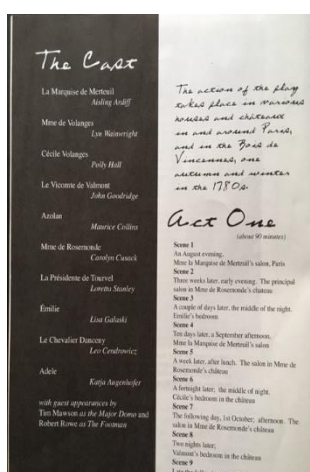 The Cast
La Marquise de Merteuil
Aisling Ardiff
Mme de Volanges
Lyn Wainwright
Cécile Volanges
Polly Hall
Le Vicomte de Valmont
John Goodridge
Azolan
Maurice Collins
Mme de Rosemonde
Carolyn Cusack
La Présidente de Tourvel
Loretta Stanley
Émilie
Lisa Galaski
Le Chevalier Danceny
Leo Cendrowicz
Adele
Katja Augenhofer
with guest appearances by
Tim Mawson as the Major Domo and
Robert Rowe as The Footman
The action of the play
takes place in various
houses and châteaux
in and around Paris,
and in the Bois de
Vincennes, one
autumn and winter
in the 1780s.
Act One
(about 90 minutes)
Scene 1
An August evening.
Mme la Marquise de Merteuil's salon, Paris
Scene 2
Three weeks later, early evening. The principal
salon in Mme de Rosemonde's château
Scene 3
A couple of days later, the middle of the night.
Emilie's bedroom
Scene 4
Ten days later, a September afternoon.
Mme la Marquise de Merteuil's salon
Scene 5
A week later, after lunch. The salon in Mme de
Rosemonde's château
Scene 6
A fortnight later; the middle of night.
Cécile's bedroom in the château
Scene 7
The following day, 1st October; afternoon. The
salon in Mme de Rosemonde's château
Scene 8
Two nights later;
Valmont's bedroom in the château
Scene 9